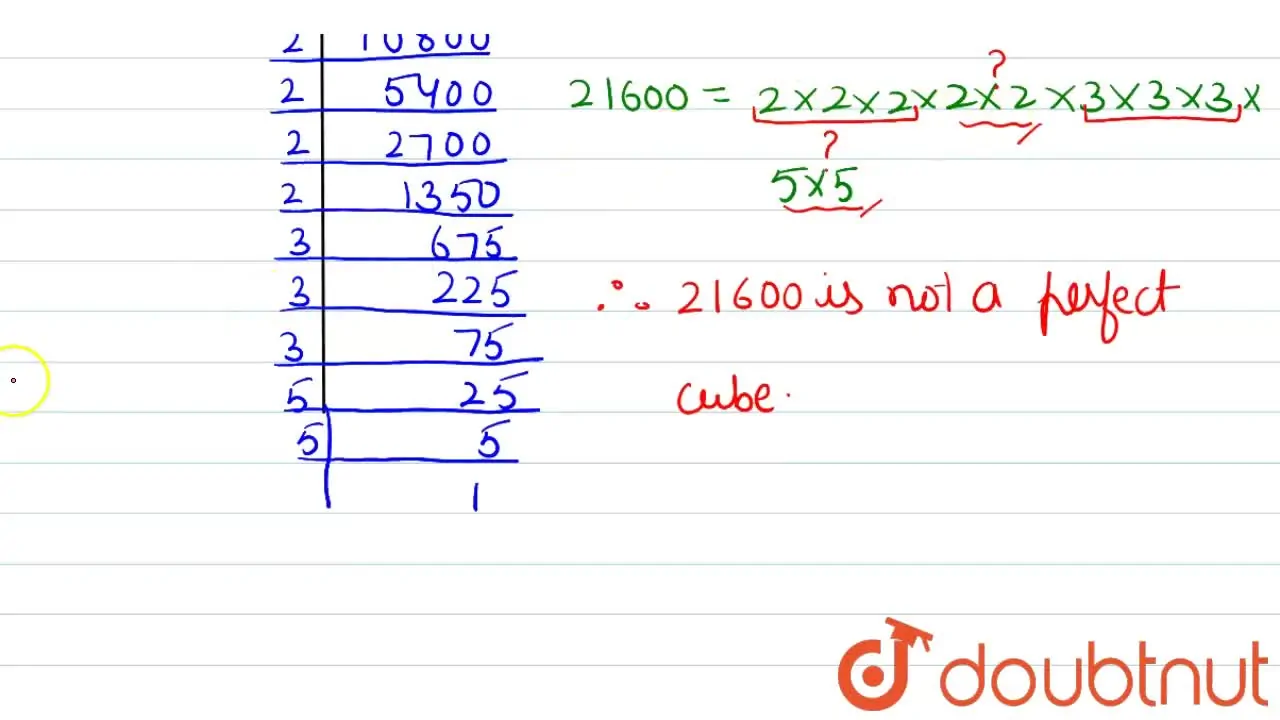 2 | 10800
2 | 5400
2 | 2700
2 | 1350
3 | 675
3 | 225
3 | 75
5 | 25
5 | 5
1
?
21600 = 2×2×2×2×2×3×3×3×
?
5×5
∴ 21600 is not a perfect
cube.
doubtnut